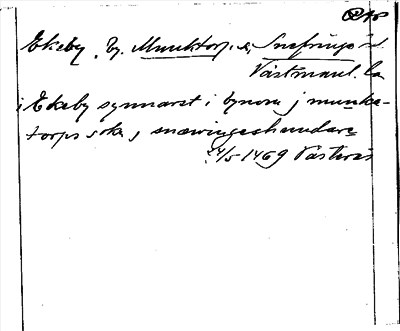 Ekeby, by, Munktorp. s., Snefringe hd.
Västmanl. la
i Ekeby synnarst i bynom j munka-
torps sokn, snæwringeshundare
24/5 1469 Västerås